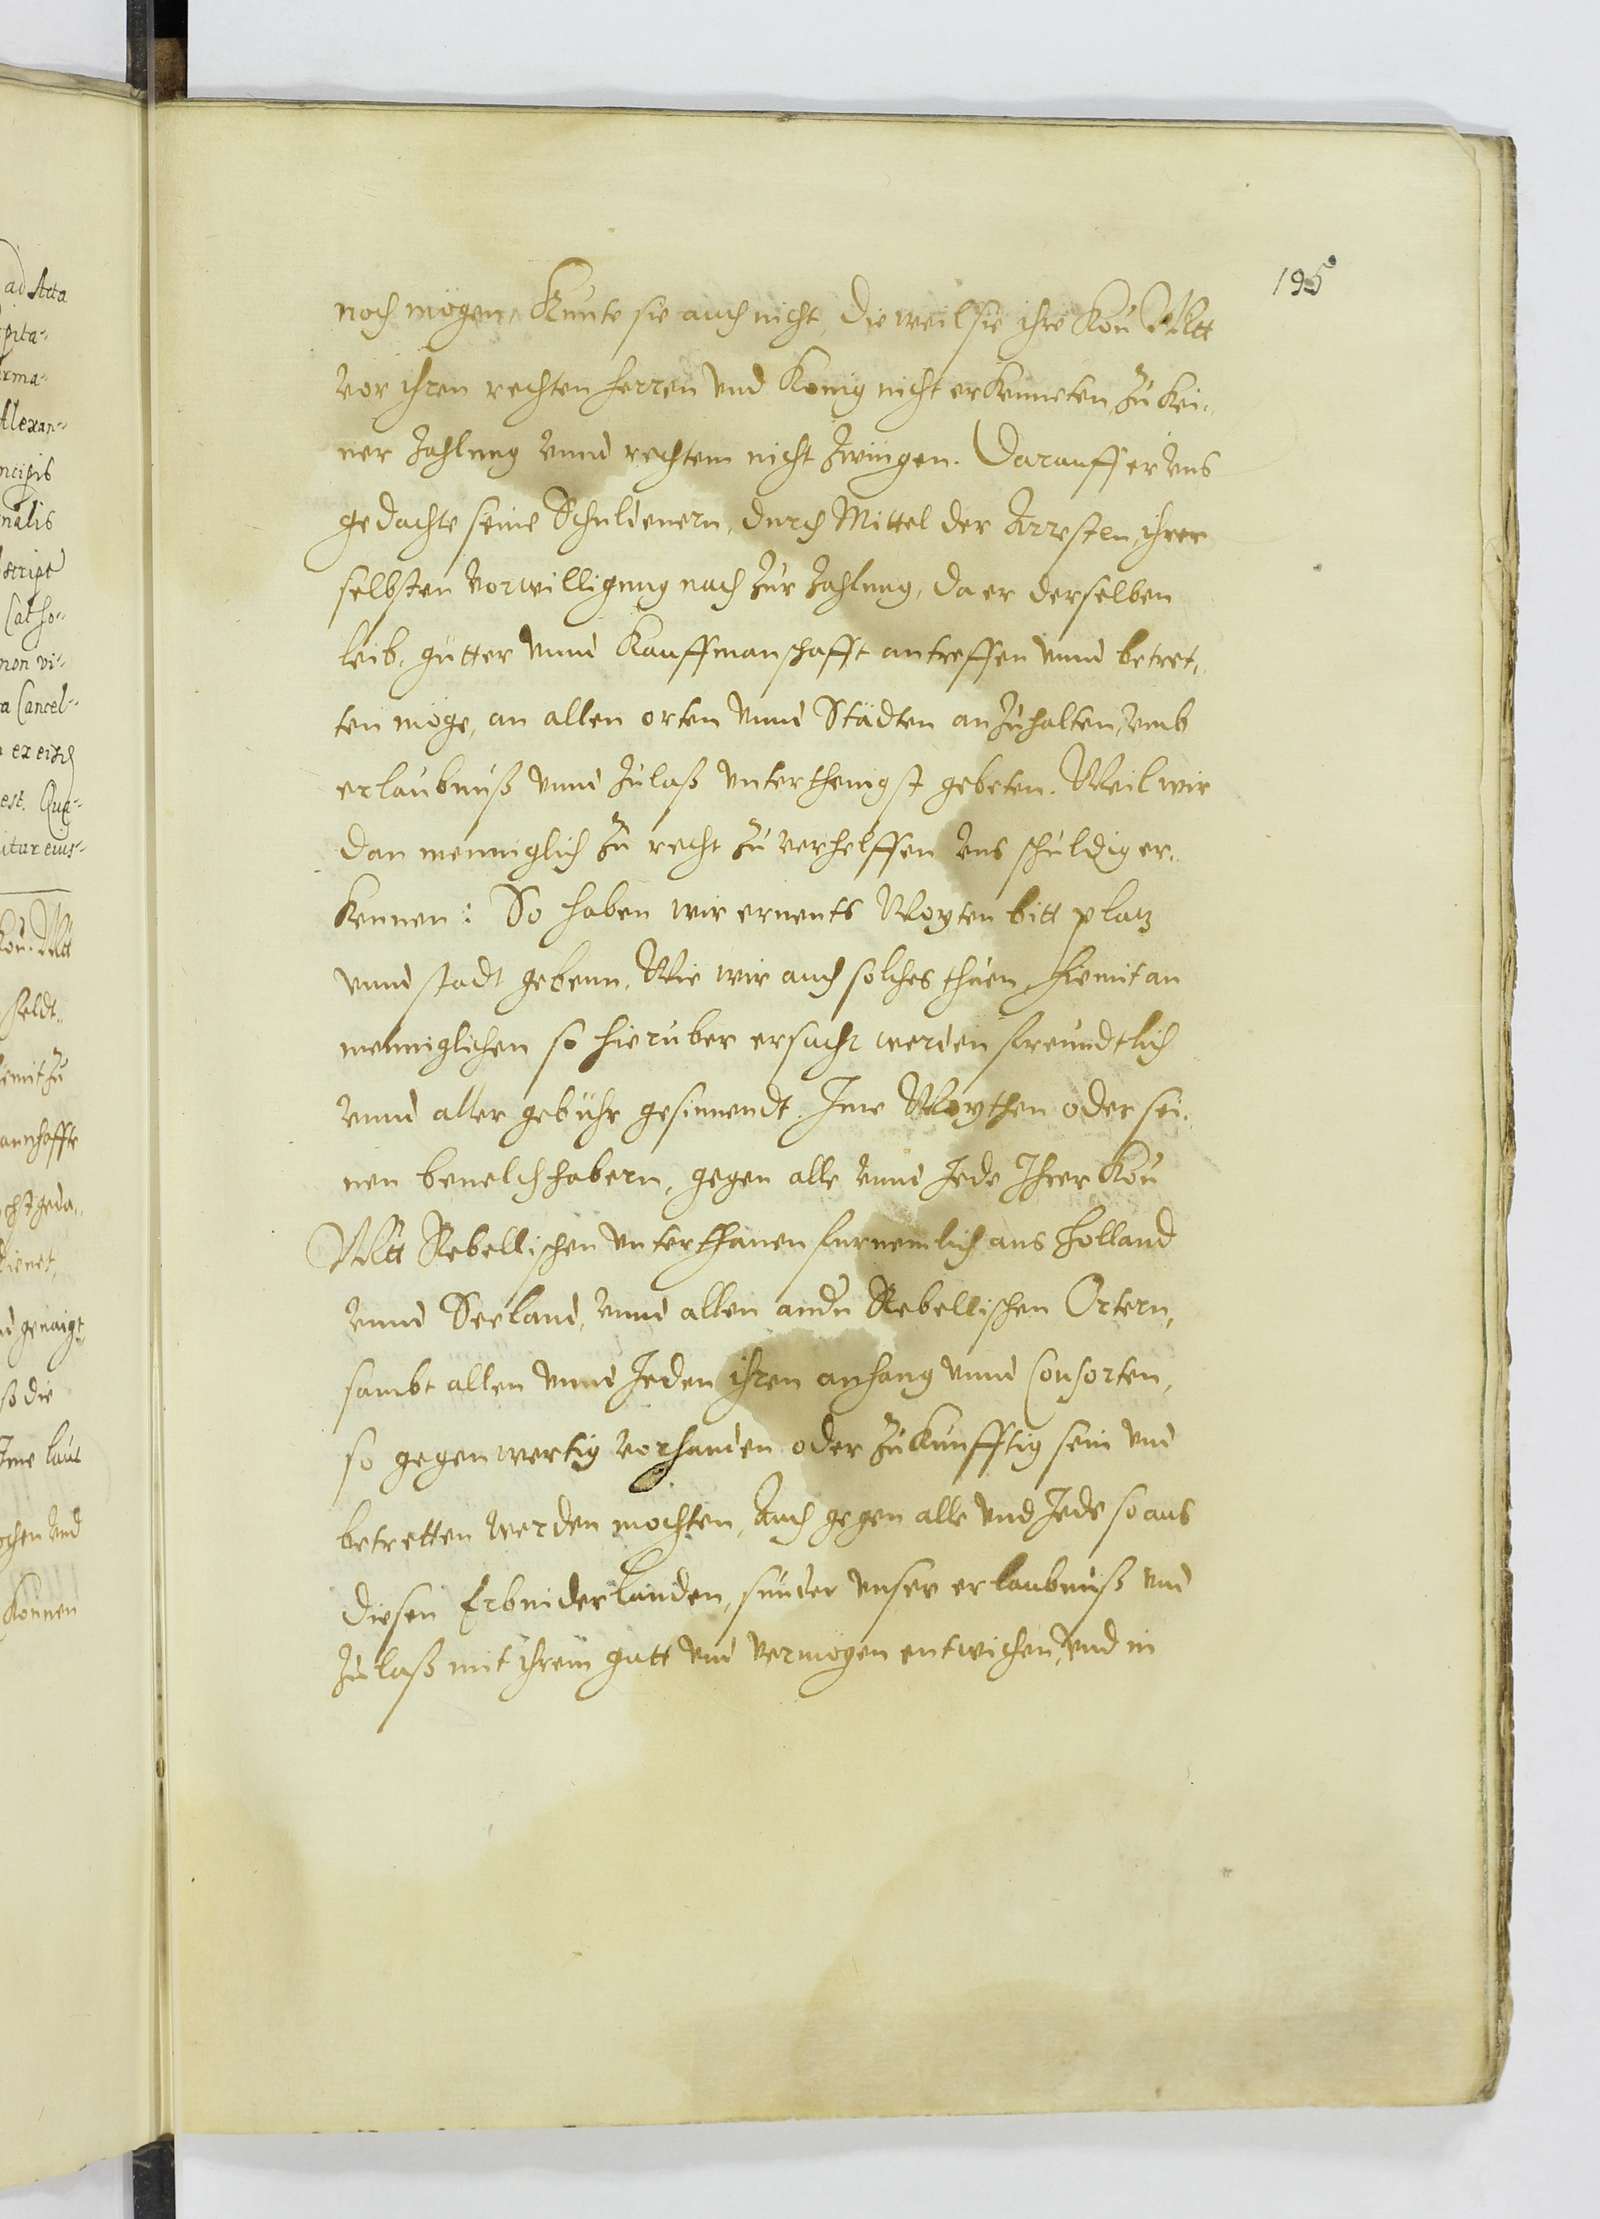 195
noch mögen, Kunte sie auch nicht, die weil sie ihre Kön Mtt
vor ihren rechten Herren vnd König nicht erkenneten, zu kei-
ner Zahlung vnnd rechtem nicht zwingen. Darauff er vns
gedachte seine Schuldenern, durch Mittel der Arresten, ihrer
selbsten vorwilligung nach zur Zahlung, da er derselben
leib, gütter vnnd Kauffmanschafft antreffen vnnd betret-
ten möge, an allen orten vnnd Städten anzuhalten, vmb
erlaubnuß vnnd zulaß vnterthenigst gebeten. Weil wir
dan menniglich zu recht zu verhelffen vns schuldig er-
kennen: So haben wir ernents Moyten bitt platz
vnnd stadt gebenn, Wie wir auch solches thuen, hiemit an
menniglichen so hieruber ersucht werden freundtlich
vnnd aller gebühr gesinnendt. Ime Moythen oder sei-
nen beuelchhabern, gegen alle vnnd Jede Ihrer Kön
Mtt Rebellischen vnterthanen furnemlich aus Holland
vnnd Seeland, vnnd allen andn Rebellischen Ortern,
sambt allen vnnd Jeden ihren anhang vnnd Consorten,
so gegenwertig vorhanden oder zukunfftig sein vnd
betretten werden mochten, Auch gegen alle vnd Jede so aus
diesen Erbniderlanden, sunder vnser erlaubnuß vnd
zulaß mit ihrem gutt vnd vermögen entwichen, vnd in